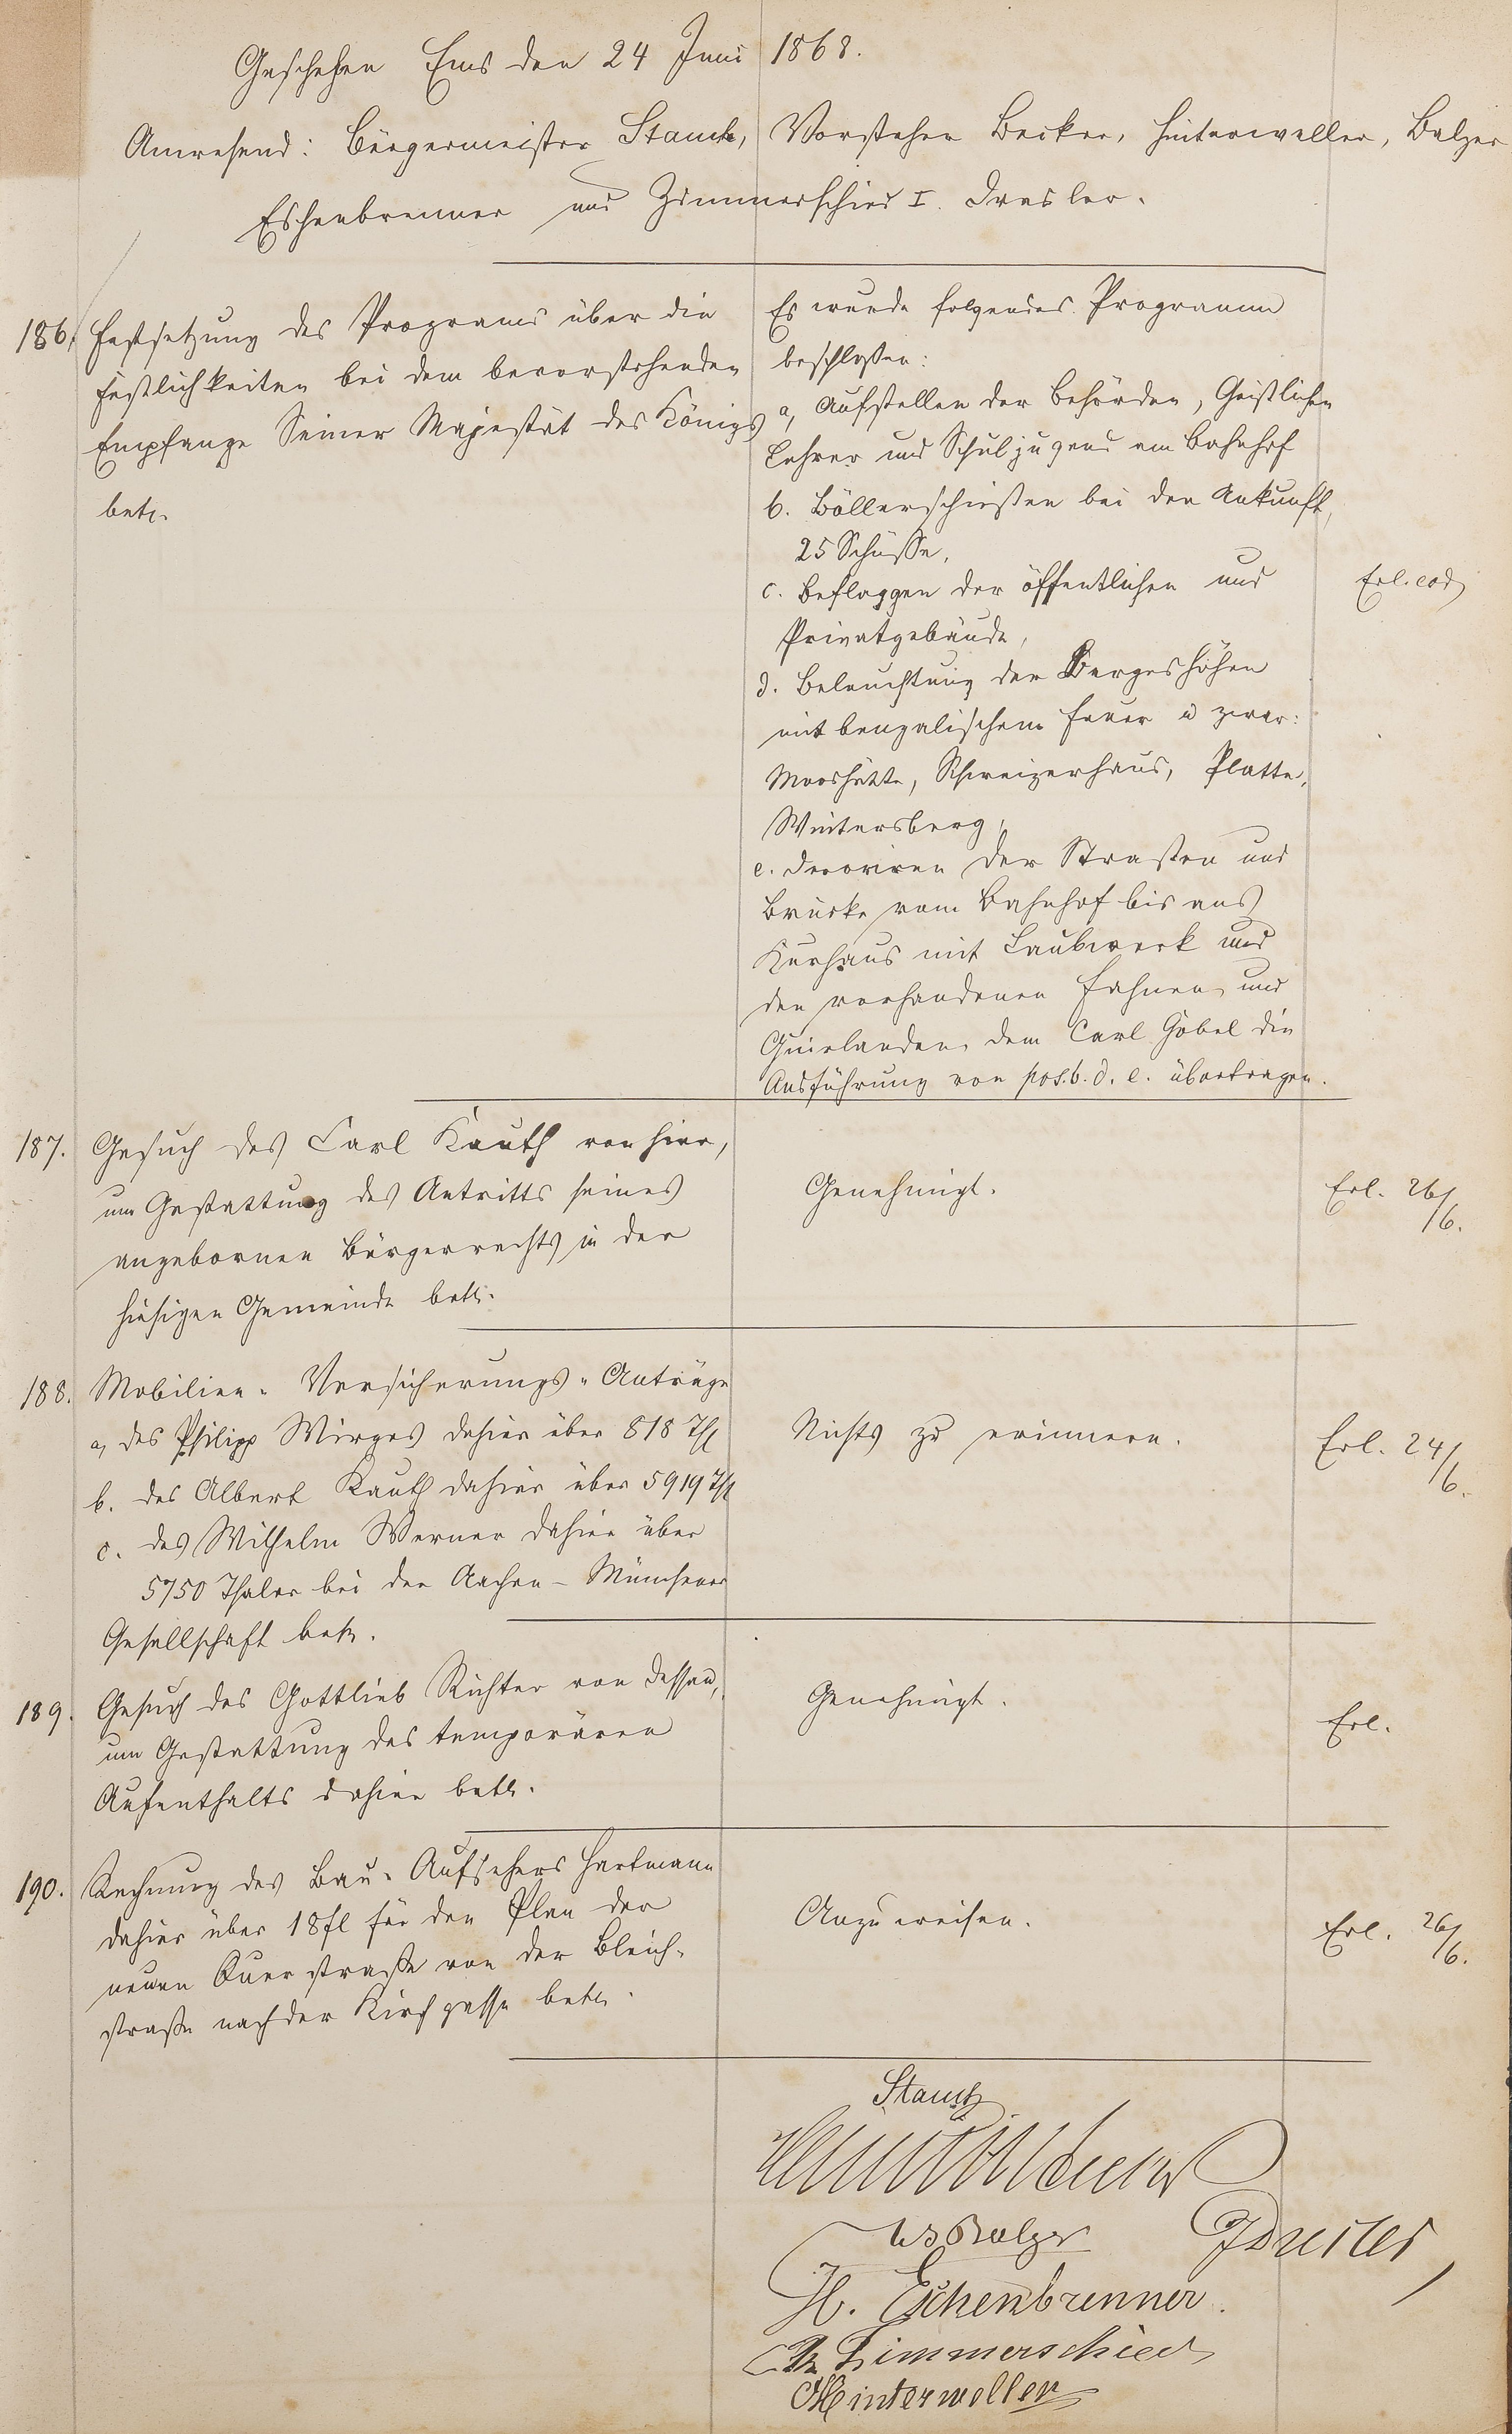 Geschehen Ems den 24 Juni 1868.
Anwesend: Bürgermeister Stauch, Vorsteher Becker, Hinterweller, Balzer
Eschenbrenner und Zimmerschied I. Dresler.
186. Festsetzung des Programs über die
Festlichkeiten bei dem bevorstehenden
Empfange Seiner Majestät des Königs
betr.
Es wurde folgendes Programm
beschloßen:
a, Aufstellen der Behörden, Geistlichen
Lehrer und Schuljugend am Bahnhof
b. Böllerschießen bei der Ankunft,
25 Schüsse,
c. Beflaggen der öffentlichen und
Privatgebäude,
d. Beleuchtung der Bergeshöhen
mit bengalischem Feuer u zwar:
Mooshütte, Schweizerhaus, Platte,
Wintersberg,
e. Decoriren der Straßen und
Brücke vom Bahnhof bis ans
Kurhaus mit Laubwerk und
den vorhandenen Fahnen und
Guirlanden, dem Carl Göbel die
Ausführung von pos. b. d. e. übertragen.
Erl. eod
187. Gesuch des Carl Kauth von hier,
um Gestattung des Antritts seines
angebornen Bürgerrechts in der
hiesigen Gemeinde betr.
Genehmigt.
Erl. 26/6.
188. Mobilien-Versicherungs-Anträge
a, des Philipp Wirges dahier über 818 Thl
b. des Albert Kauth dahier über 5919 Thl
c. des Wilhelm Werner dahier über
5750 Thaler bei der Aachen-Münchener
Gesellschaft betr.
Nichts zu erinnern.
Erl. 24/6.
189. Gesuch des Gottlieb Richter von Dessau,
um Gestattung des temporären
Aufenthalts dahier betr.
Genehmigt.
Erl.
190. Rechnung des Bau-Aufsehers Hartmann
dahier über 18 fl für den Plan der
neuen Querstraße von der Bleich-
straße nach der Kirchgasse betr.
Anzuweisen.
Erl. 26/6.
Stauch
W Balzer
Dresler
H. Eschenbrenner.
Zimmerschied
Hinterweller